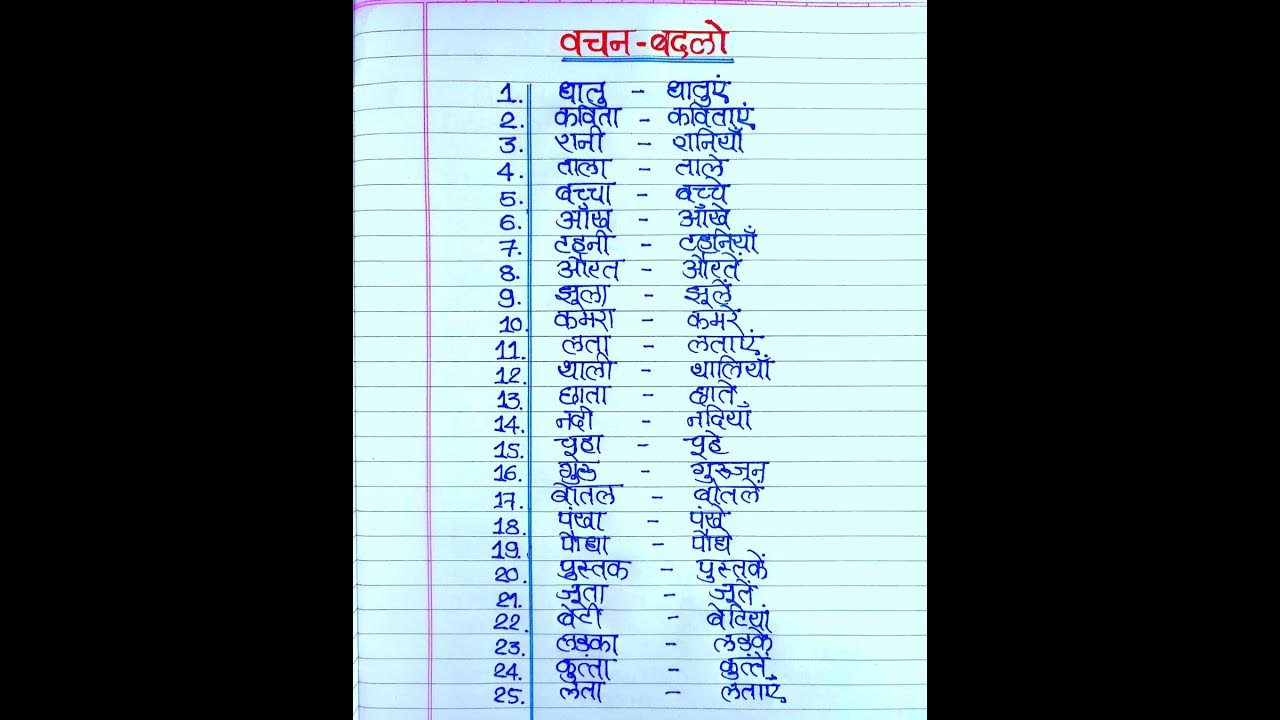 वचन-बदलो
1. धातु - धातुएं
2. कविता - कविताएं
3. रानी - रानियाँ
4. ताला - ताले
5. बच्चा - बच्चे
6. आँख - आँखे
7. टहनी - टहनियाँ
8. औरत - औरतें
9. झूला - झूलें
10. कमरा - कमरें
11. लता - लताएं
12. थाली - थालियाँ
13. छाता - छाते
14. नदी - नदियाँ
15. चूहा - चूहे
16. गुरु - गुरुजन
17. बोतल - बोतलें
18. पंखा - पंखे
19. पौधा - पौधे
20. पुस्तक - पुस्तकें
21. जूता - जूतें
22. बेटी - बेटियां
23. लड़का - लड़कें
24. कुत्ता - कुत्तें
25. लता - लताएं